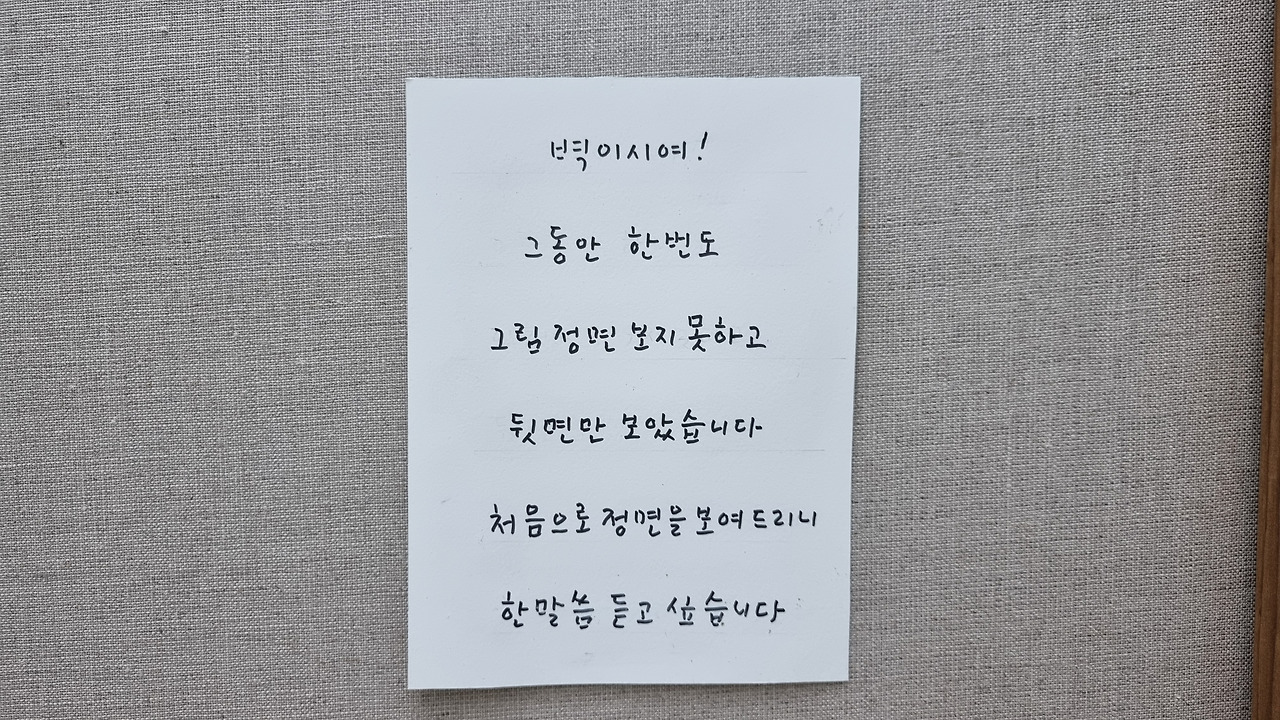 벽이시여!
그동안 한번도
그림 정면 보지 못하고
뒷면만 보았습니다
처음으로 정면을 보여드리니
한말씀 듣고 싶습니다